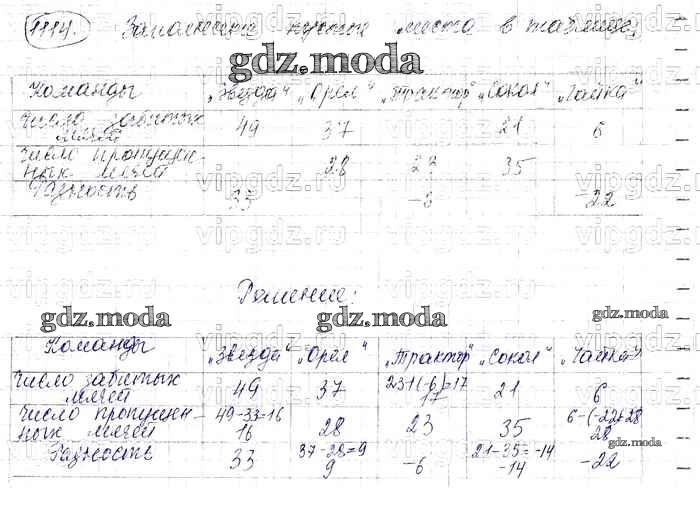 1114. Заполнить пустые места в таблице
gdz.moda
Команды "Звезда" "Орёл" "Трактор" "Сокол" "Чайка"
Число забитых мячей 49 37 21 6
Число пропущен-
ных мячей 28 35
Разность 33 -6 -22
Решение:
gdz.moda gdz.moda gdz.moda
Команды "Звезда" "Орёл" "Трактор" "Сокол" "Чайка"
Число забитых 23+(-6)=17
мячей 49 37 17 21 6
Число пропущен- 49-33=16 6-(-22)=28
ных мячей 16 28 23 35 28
Разность 33 37-28=9 -6 21-35=-14 -22
9 -14
gdz.moda